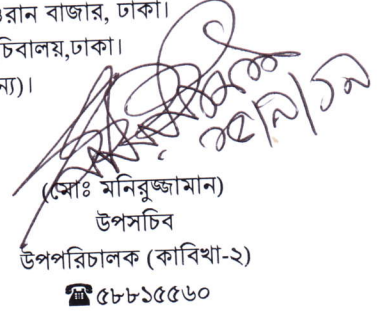 রান বাজার, ঢাকা।
চিবালয়,ঢাকা।
ন্য)।
(মোঃ মনিরুজ্জামান)
উপসচিব
উপপরিচালক (কাবিখা-২)
☎ ৫৮৮১৫৫৬০